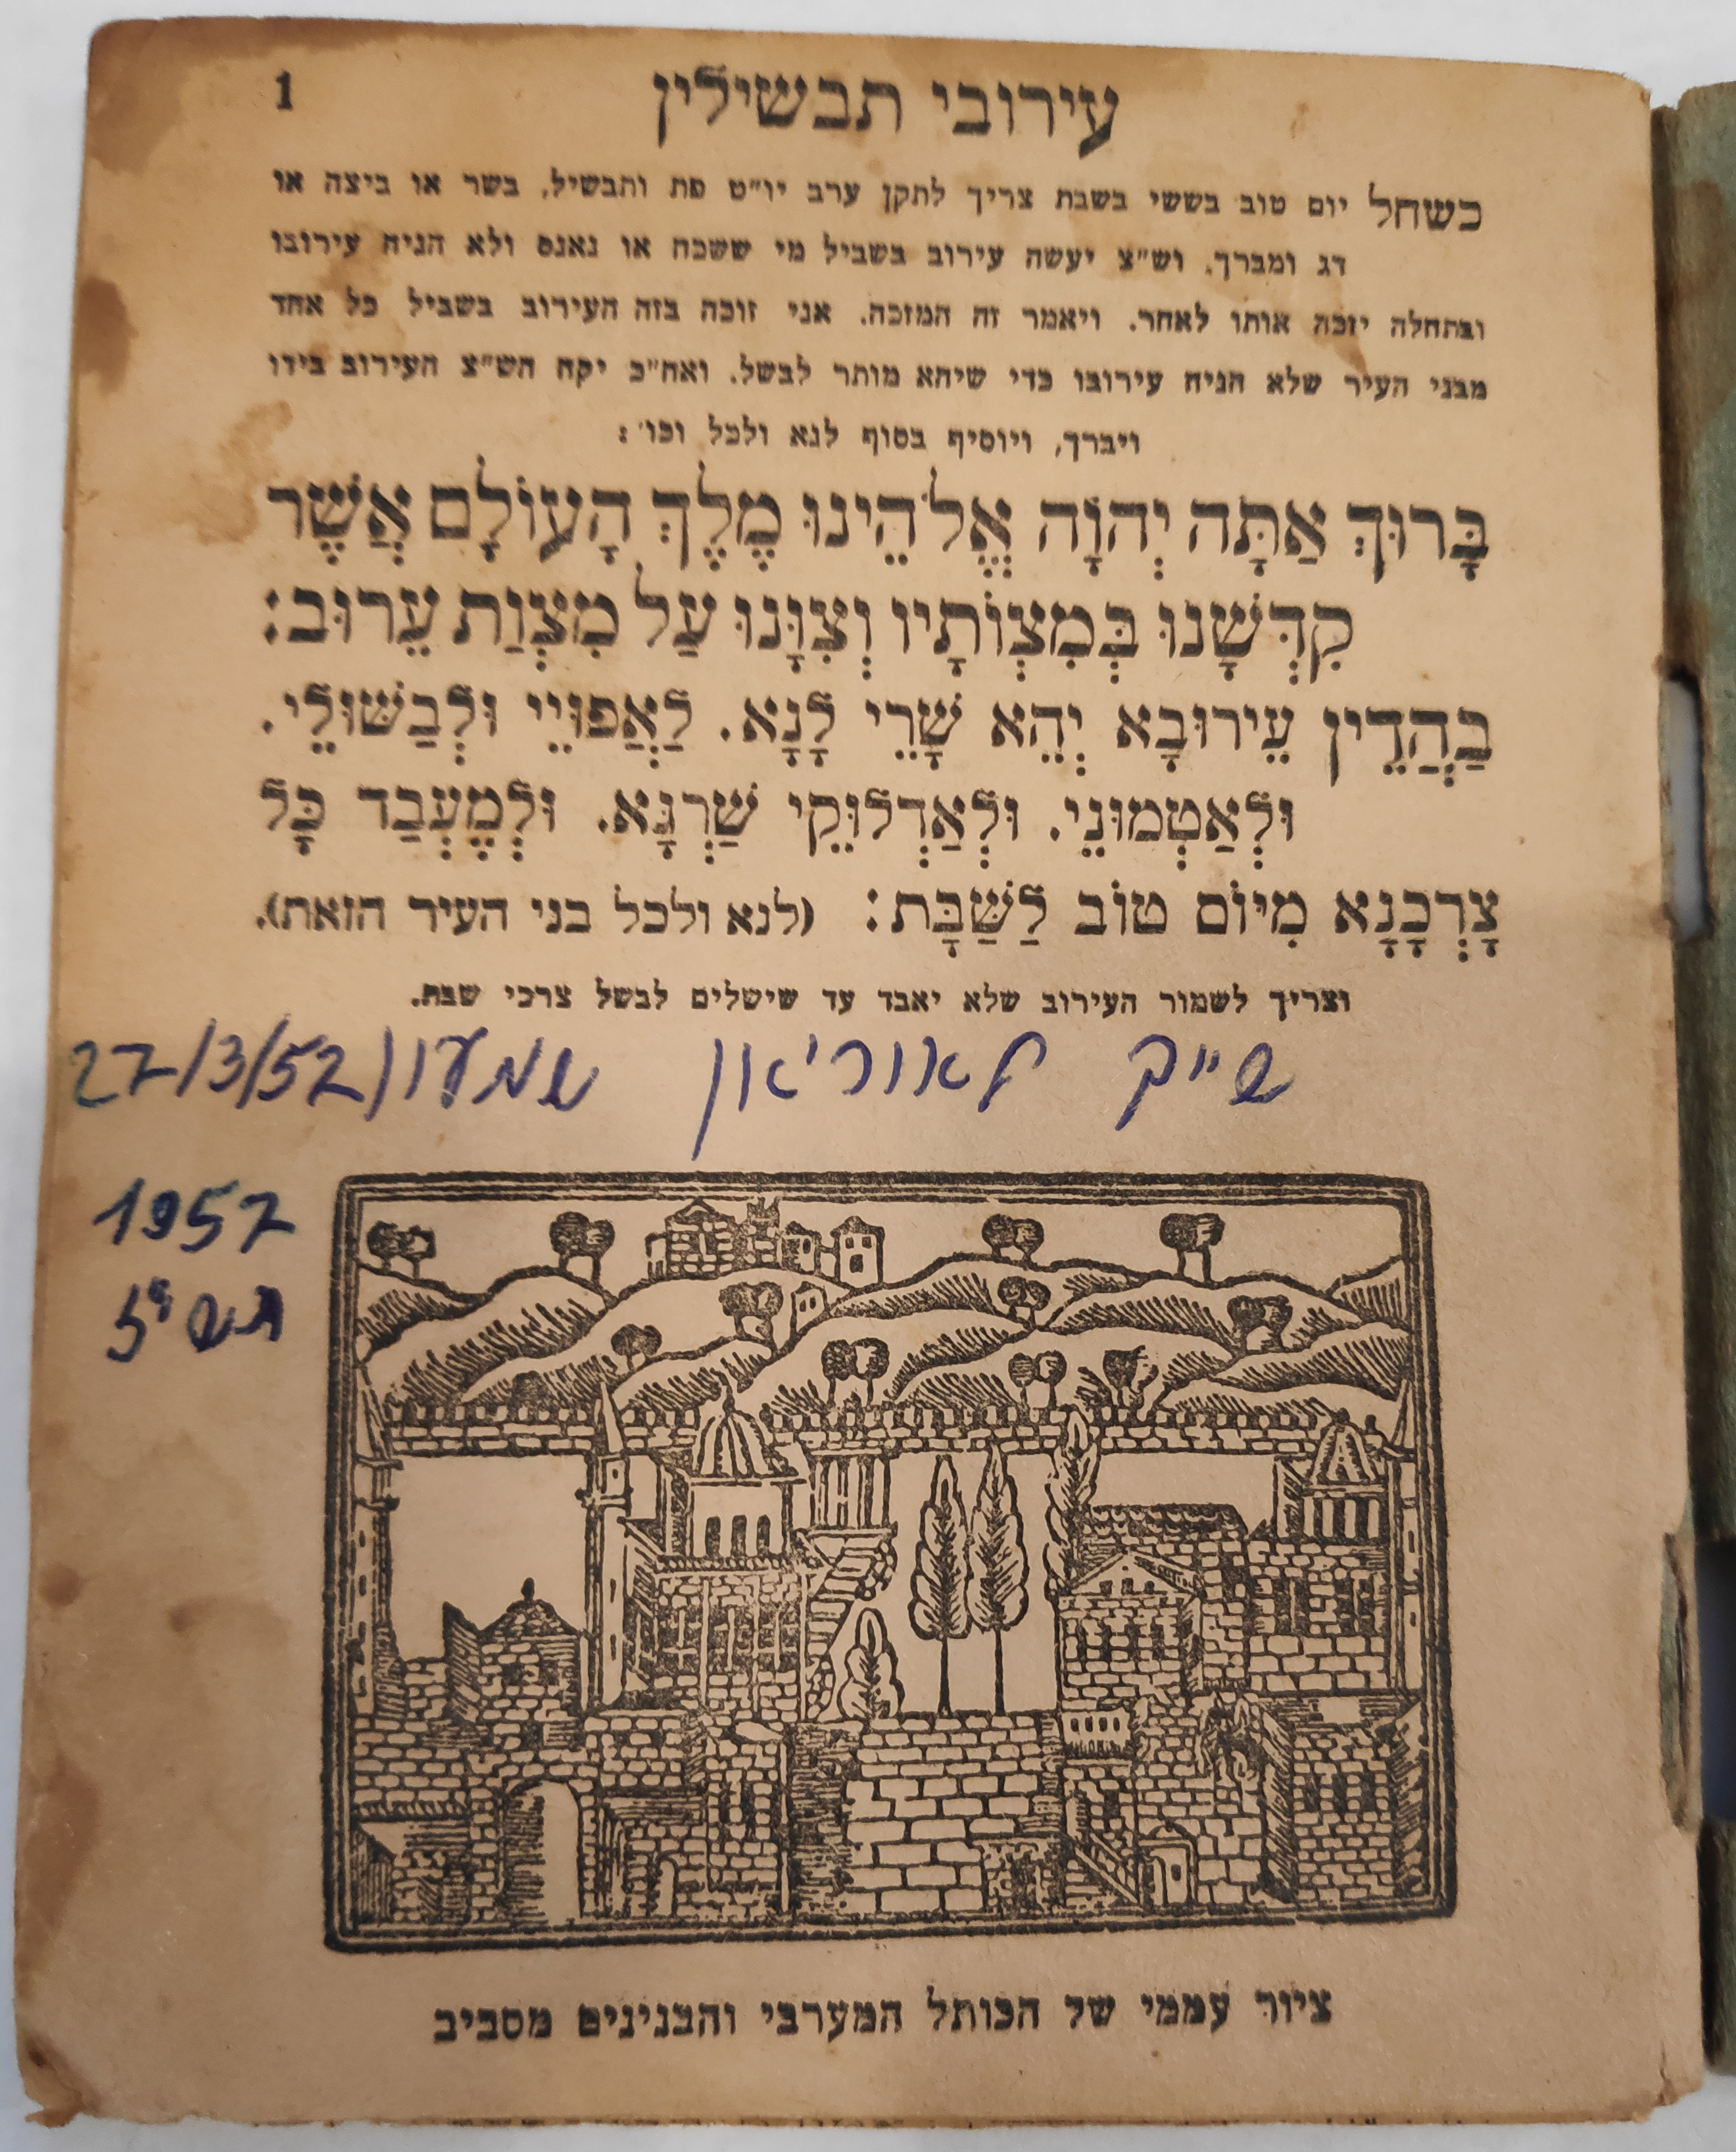 1
עירובי תבשילין
כשחל יום טוב בששי בשבת צריך לתקן ערב יו"ט פת ותבשיל, בשר או ביצה או
דג ומברך. וש"צ יעשה עירוב בשביל מי ששכח או נאנס ולא הניח עירובו
ובתחלה יזכה אותו לאחר. ויאמר זה המזכה. אני זוכה בזה העירוב בשביל כל אחד
מבני העיר שלא הניח עירובו כדי שיהא מותר לבשל. ואח"כ יקח הש"צ העירוב בידו
ויברך, ויוסיף בסוף לנא ולכל וכו':
בָּרוּךְ אַתָּה יְהוָֹה אֱלֹהֵינוּ מֶלֶךְ הָעוֹלָם אֲשֶׁר
קִדְּשָׁנוּ בְּמִצְוֹתָיו וְצִוָּנוּ עַל מִצְוַת עֵרוּב:
בַּהֲדֵין עֵירוּבָא יְהֵא שָׁרֵי לָנָא. לַאֲפוּיֵי וּלְבַשּׁוּלֵי.
וּלְאַטְמוּנֵי. וּלְאַדְלוּקֵי שַׁרְגָּא. וּלְמֶעְבַּד כָּל
צָרְכָנָא מִיּוֹם טוֹב לַשַּׁבָּת: (לנא ולכל בני העיר הזאת).
וצריך לשמור העירוב שלא יאבד עד שישלים לבשל צרכי שבת.
שייך לאור'און שמעון 27/3/57
1957
תשי"ז
ציור עממי של הכותל המערבי והבנינים מסביב